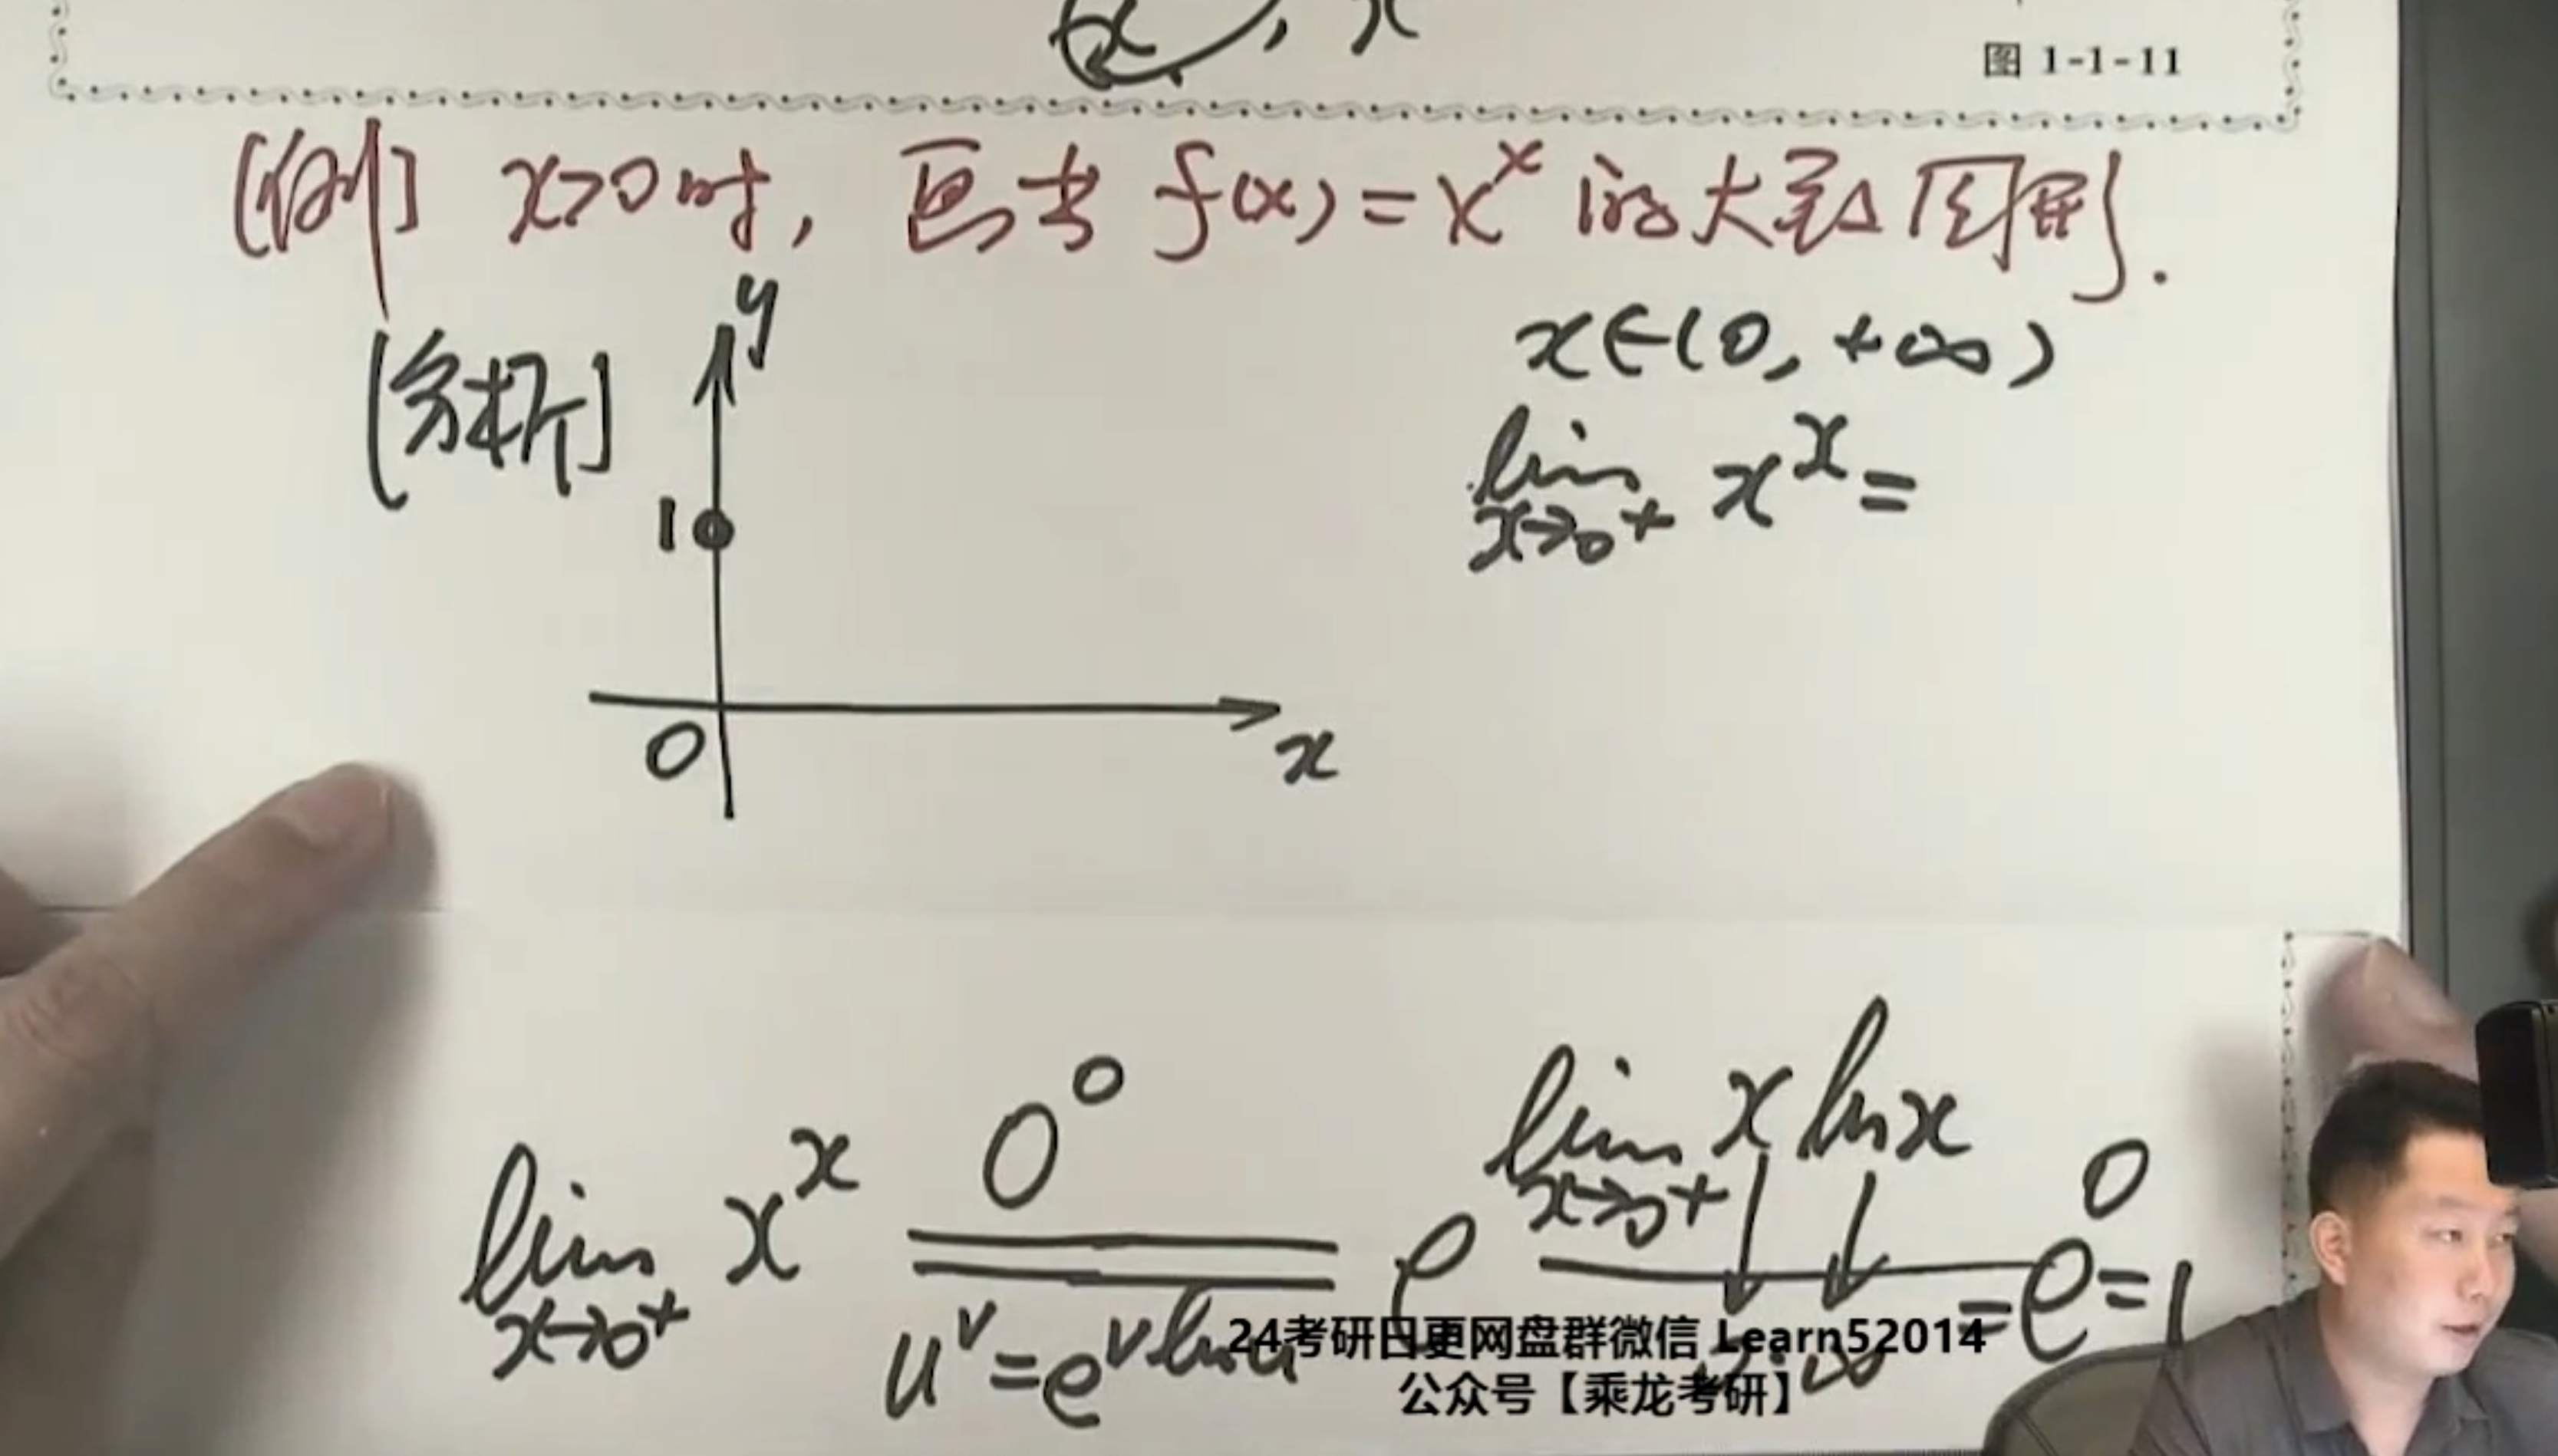 x
图 1-1-11
[例] x>0时, 画出 f(x)=x^x 的大致图形.
[分析]
y
x∈(0, +∞)
lim x→0+ x^x =
1
0
x
lim x→0+ x^x
0^0
u^v = e^{v ln u}
e^{lim x→0+ x ln x} = e^0 = 1
24考研日更网盘群微信 Learn52014
公众号【乘龙考研】